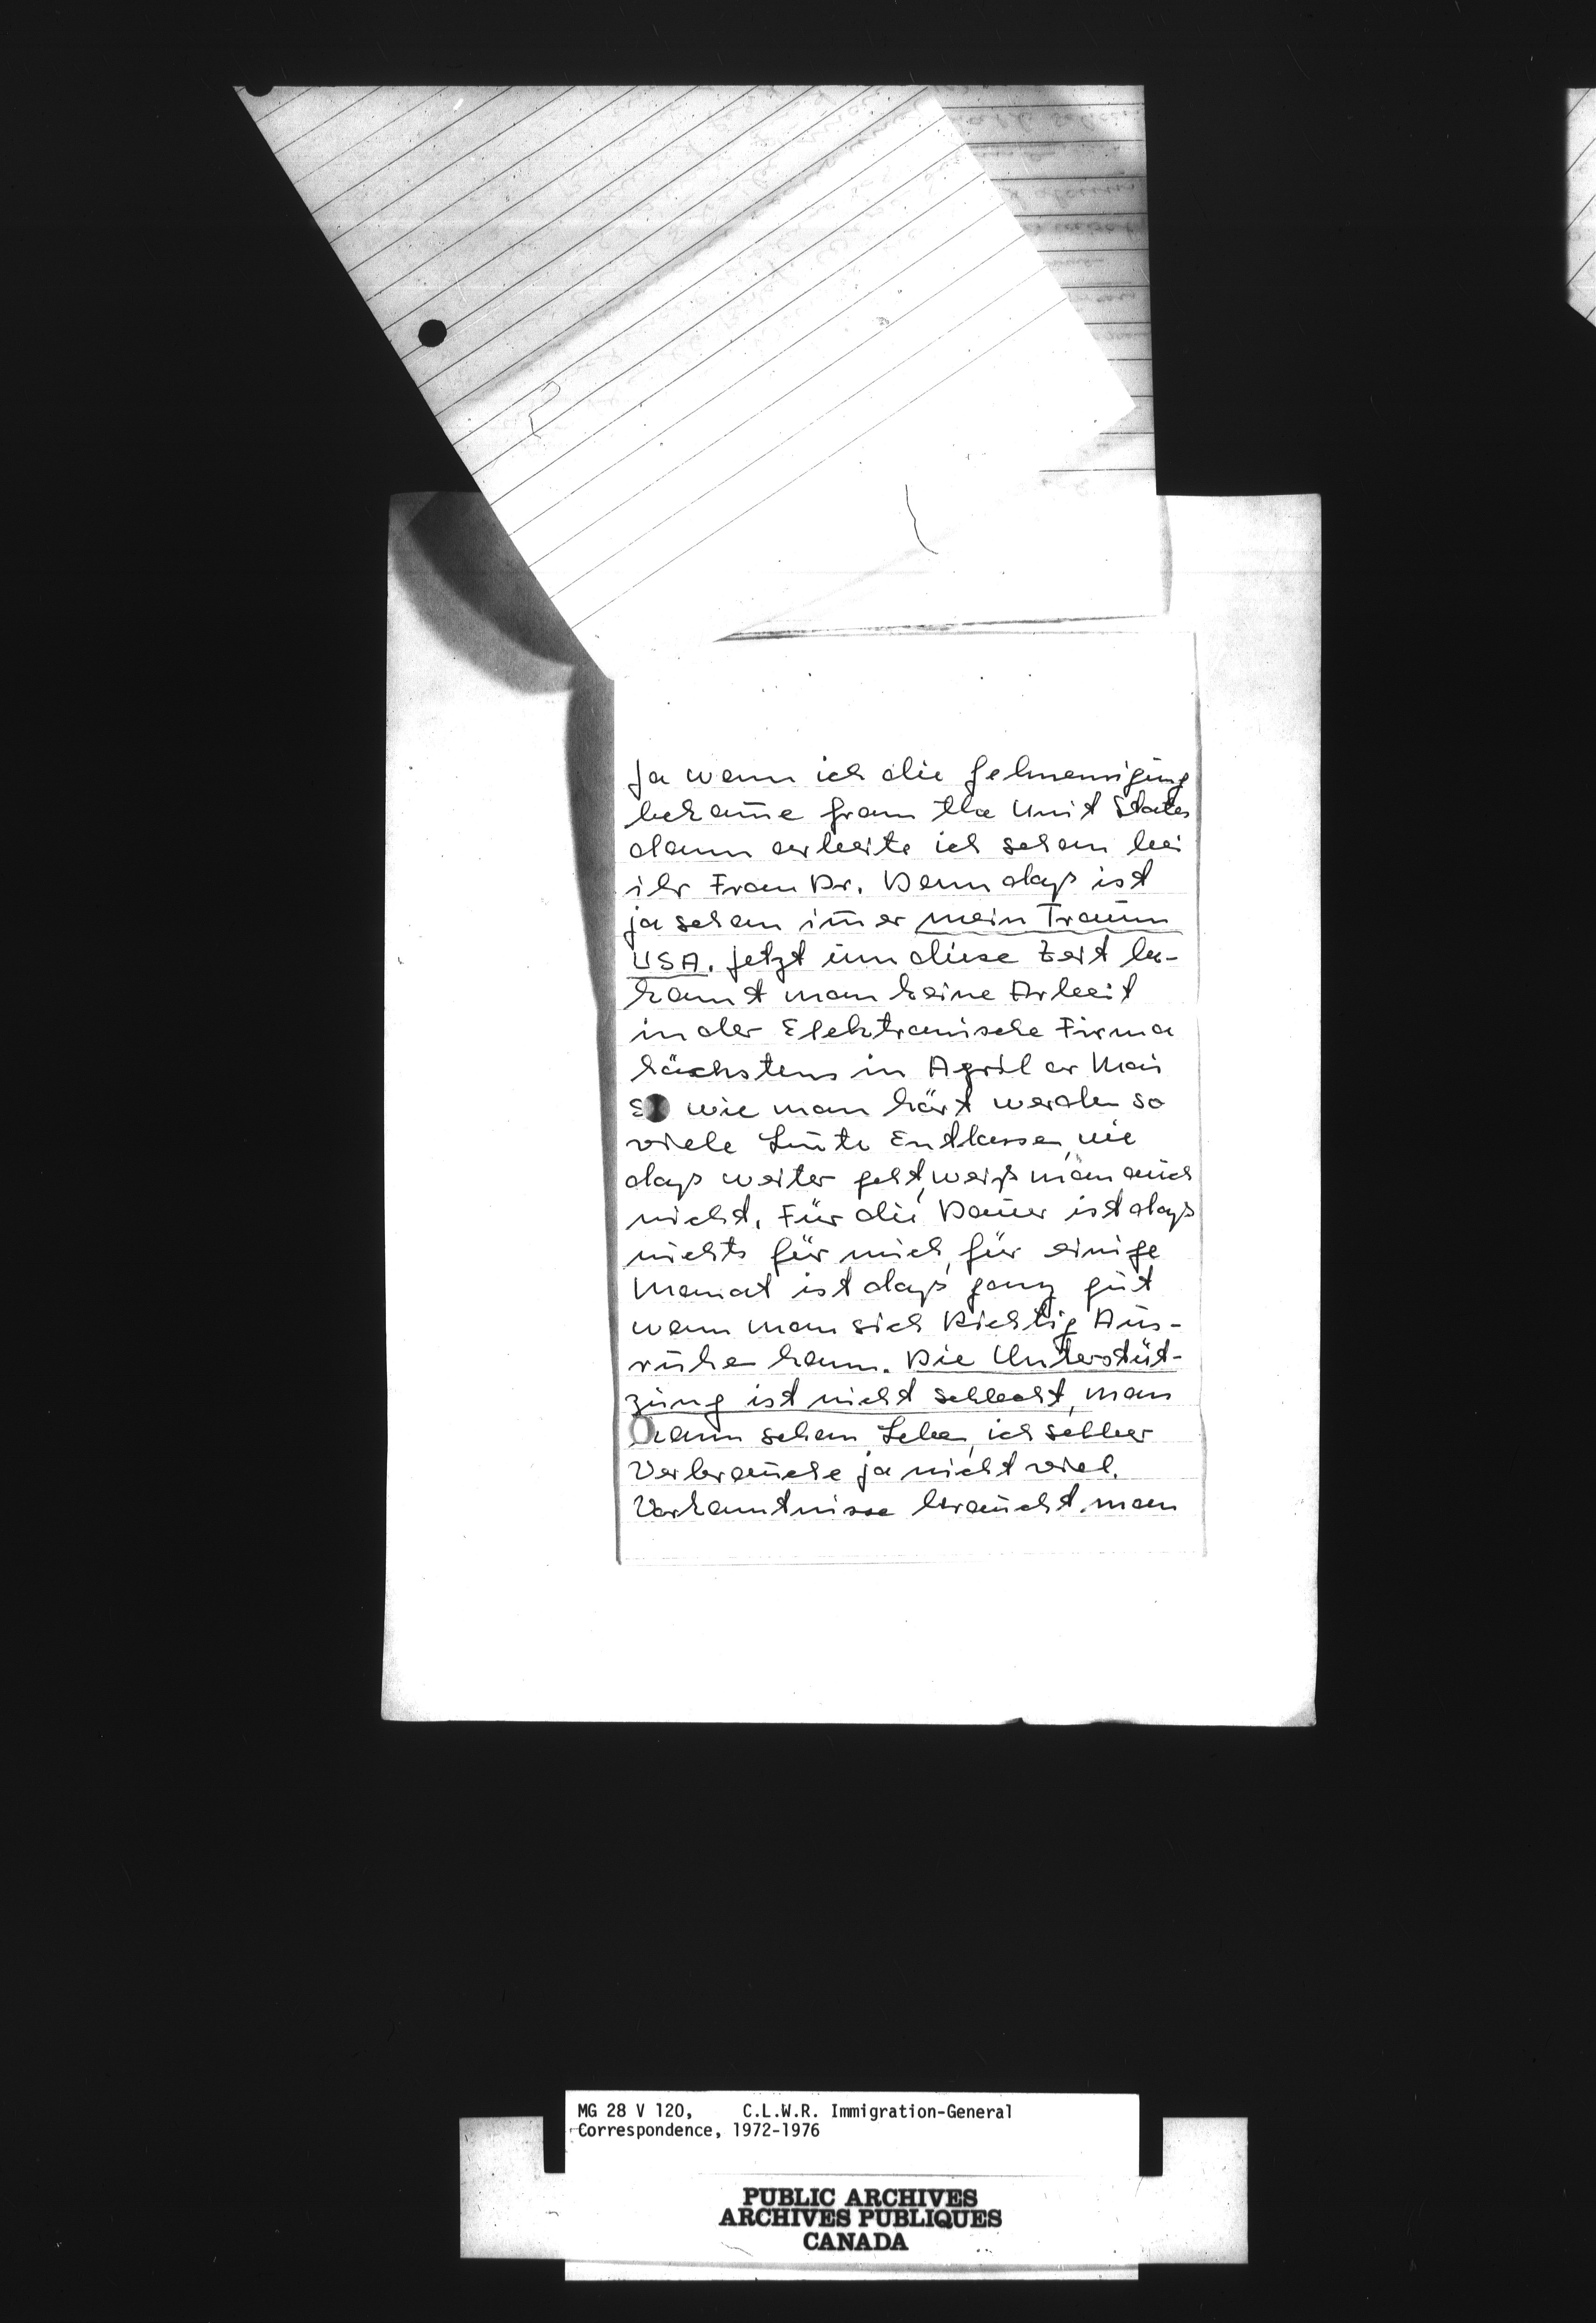 Ja wenn ich die Gehnemigung
bekom̄e from the Unit States
dann arbeite ich schon bei
ihr Frau Dr. Denn daß ist
ja schon im̄er mein Traum
USA. Jetzt um diese Zeit be-
kommt man keine Arbeit
in der Elektronische Firma
höchstens in April or Mai
wie man hört werden so
viele Leute Entlassen, wie
daß weiter geht, weiß man auch
nicht. Für die Dauer ist daß
nichts für mich, für einige
Monat ist daß ganz gut
wenn man sich Richtig Aus-
ruhen kann. Die Unterstüt-
zung ist nicht schlecht, man
kann schon Leben, ich selber
Verbrauche ja nicht viel.
Vorkenntnisse braucht man
MG 28 V 120, C.L.W.R. Immigration-General
Correspondence, 1972-1976
PUBLIC ARCHIVES
ARCHIVES PUBLIQUES
CANADA